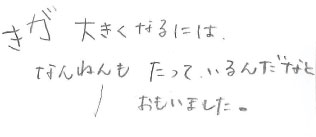 きが 大きくなるには、
なんねんも たっているんだなと
おもいました。